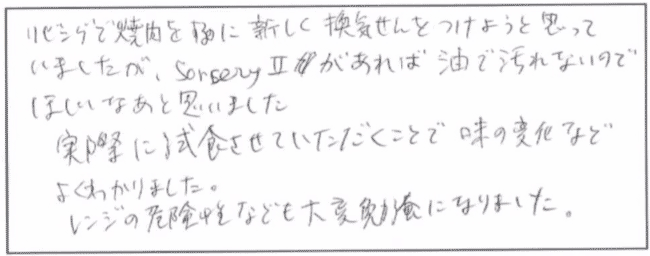 リビングで焼肉を為に新しく換気せんをつけようと思って
いましたが、SorseryⅡがあれば油で汚れないので
ほしいなあと思いました
実際に試食させていただくことで味の変化など
よくわかりました。
レンジの危険性なども大変勉強になりました。